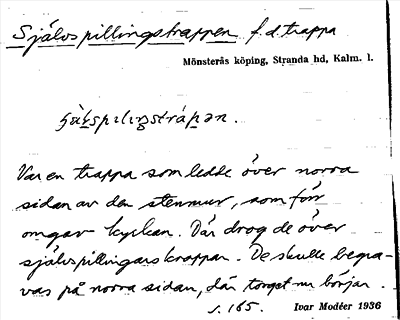 Självspillingstrappen f.d. trappa
Mönsterås köping, Stranda hd, Kalm. l.
Var en trappa som ledde över norra
sidan av den stenmur, som förr
omgav kyrkan. Där drog de över
självspillingars kroppar. De skulle begra-
vas på norra sidan, där torget nu börjar.
s. 165. Ivar Modéer 1936